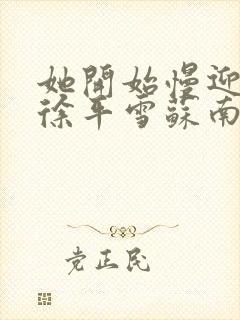 她開始慢迎
徐平雪蘇南
党正民